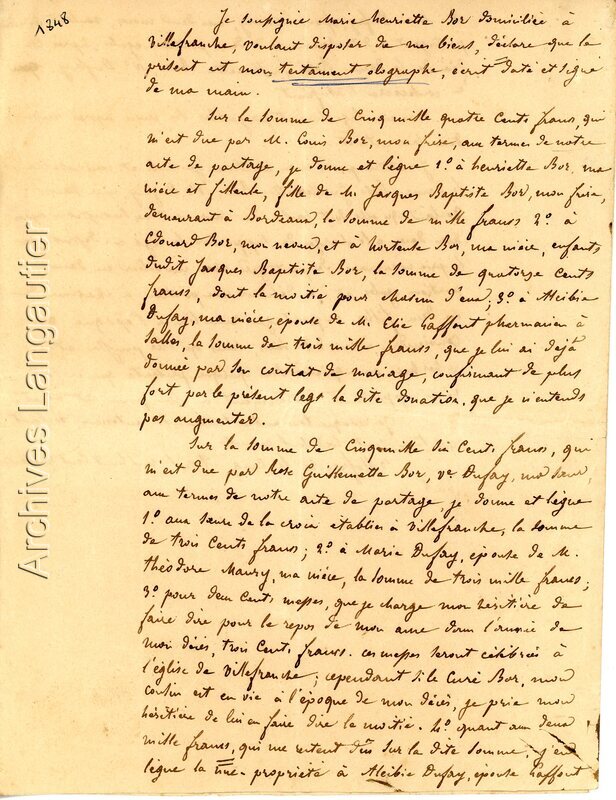 1848
Je soussignée Marie henriette Bor domiciliée à
Villefranche, voulant disposer de mes biens, déclare que le
présent est mon testament olographe, écrit daté et signé
de ma main.
Sur la somme de Cinq mille quatre Cents francs, qui
m'est due par M. Louis Bor, mon frère, aux termes de notre
acte de partage, je donne et lègue 1º. à henriette Bor, ma
nièce et filleule, fille de M. Jacques Baptiste Bor, mon frère,
demeurant à Bordeaux, la somme de mille francs 2º. à
Edouard Bor, mon neveu, et à hortense Bor, ma nièce, enfants
dudit Jacques Baptiste Bor, la somme de quatorze cents
francs, dont la moitié pour chacun d'eux, 3º. à Alcibie
Dufay, ma nièce, épouse de M. Elie Gaffont pharmacien à
Salles, la somme de trois mille francs, que je lui ai déjà
donnée par son contrat de mariage, confirmant de plus
fort par le présent legs la dite donation, que je n'entends
pas augmenter.
Sur la somme de Cinq mille six Cents francs, qui
m'est due par Rose Guillemette Bor, Ve. Dufay, ma sœur,
aux termes de notre acte de partage je donne et lègue
1º. aux sœurs de la croix établies à Villefranche, la somme
de trois Cents francs; 2º. à Maria Dufay, épouse de M.
théodore Maury, ma nièce, la somme de trois mille francs;
3º. pour deux Cents messes, que je charge mon héritière de
faire dire pour le repos de mon ame dans l'année de
mon décès, trois Cents francs. ces messes seront célébrées à
l'église de Villefranche; cependant si le Curé Bor, mon
cousin est en vie à l'époque de mon décès, je prie mon
héritière de lui en faire dire la moitié. 4º. quant aux deux
mille francs, qui me restent dus sur la dite somme, j'en
lègue la nue-propriété à Alcibie Dufay, épouse Gaffont
Archives Langautier